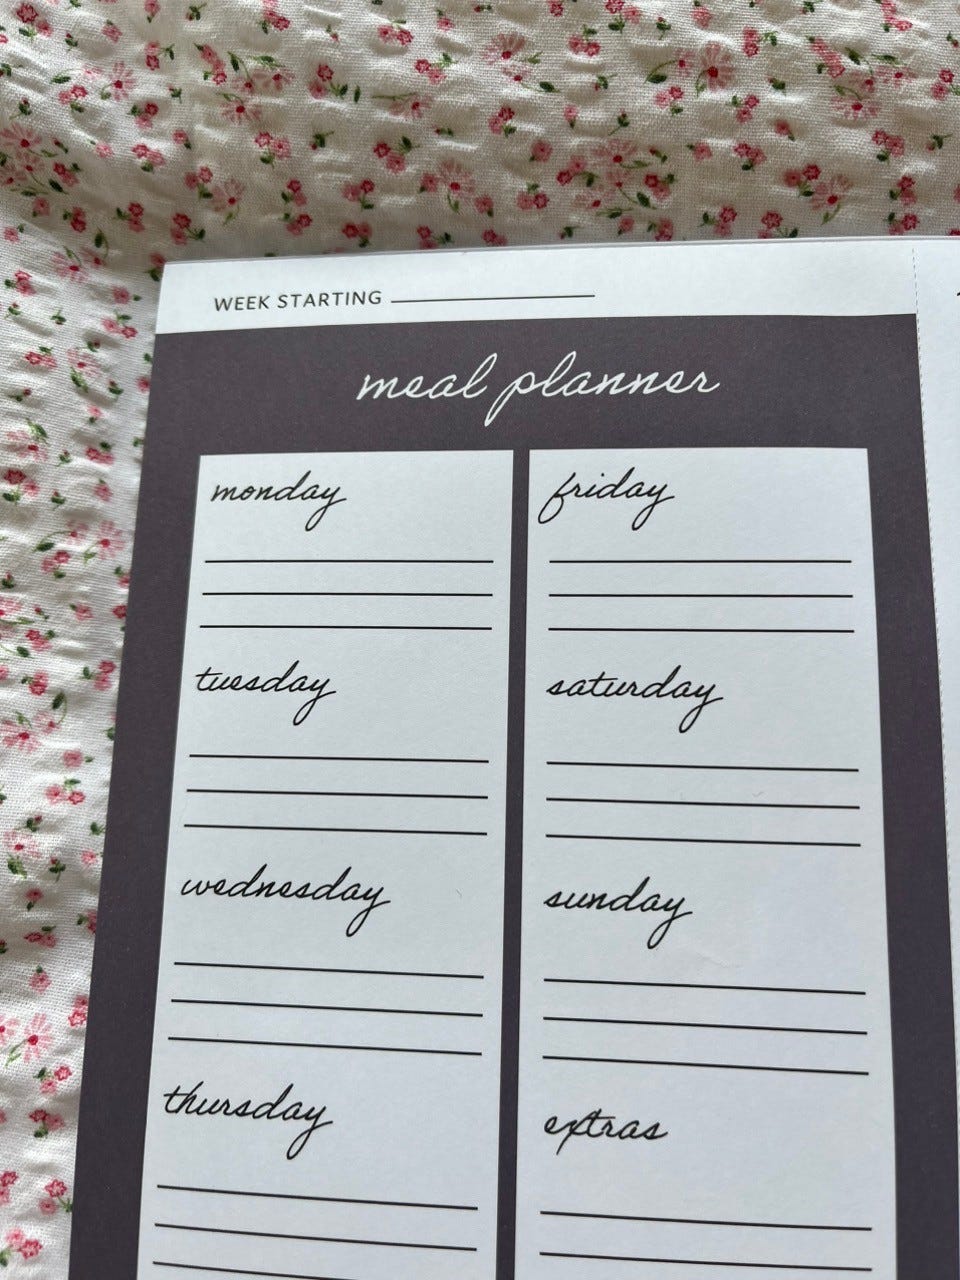 WEEK STARTING
meal planner
monday
tuesday
wednesday
thursday
friday
saturday
sunday
extras